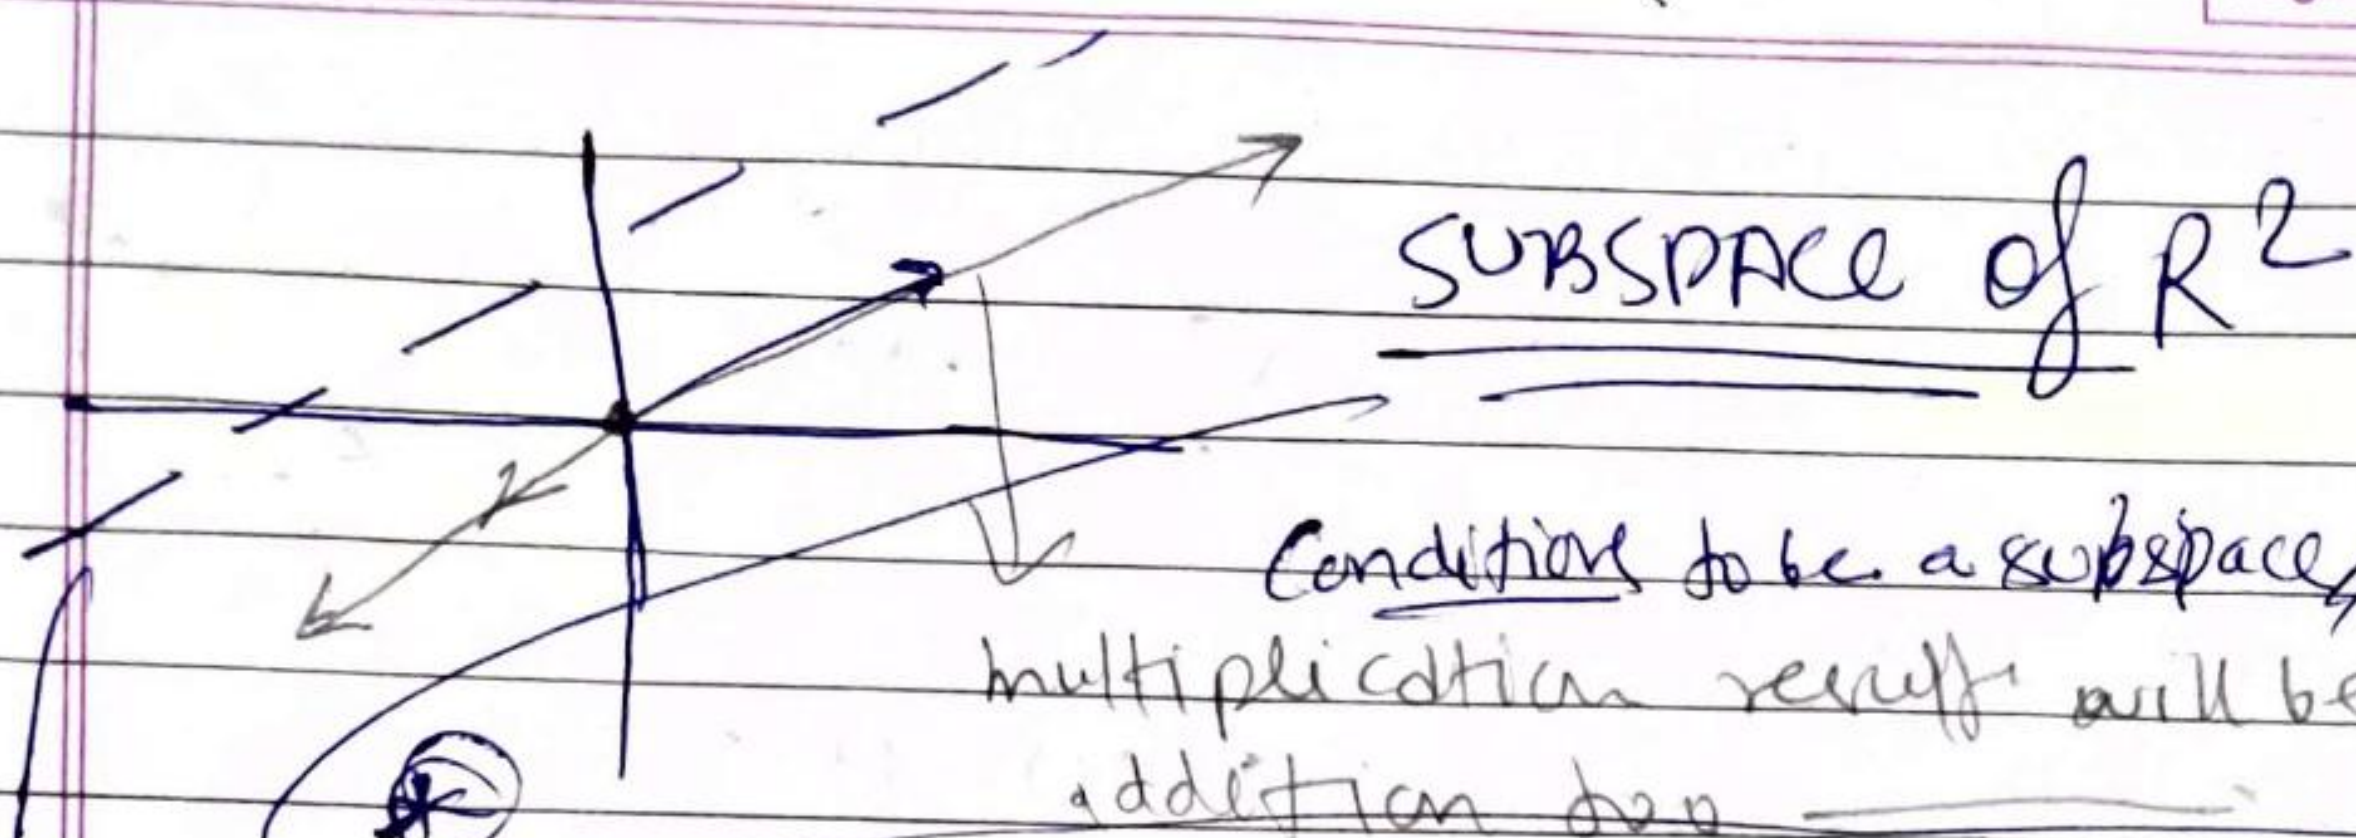 SUBSPACE of R²
Conditions to be a subspace,
multiplication result will be
addition too